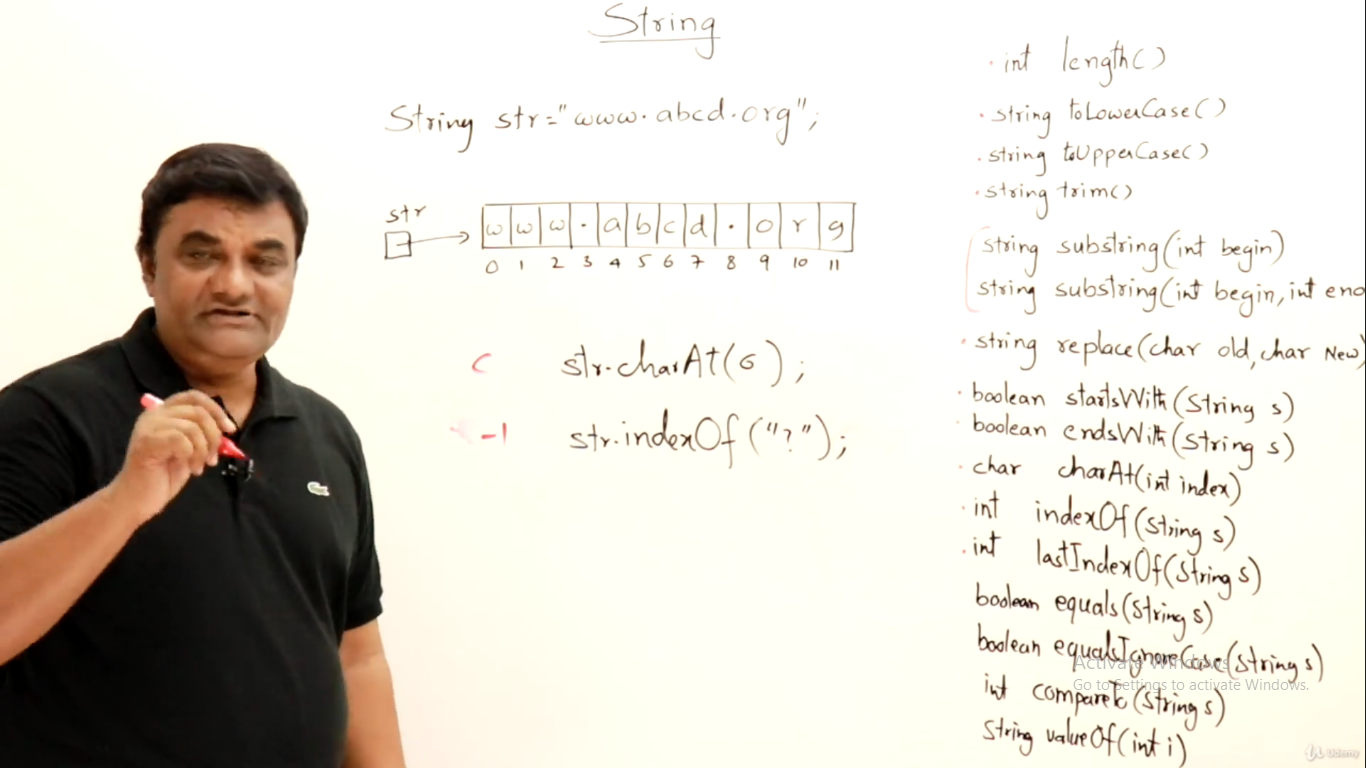 String
String str="www.abcd.org";
str
w w w . a b c d . o r g
0 1 2 3 4 5 6 7 8 9 10 11
c str.charAt(6);
-1 str.indexOf("?");
· int length()
· string toLowerCase()
· string toUpperCase()
· string trim()
string substring(int begin)
string substring(int begin, int end
· string replace(char old, char New)
· boolean startsWith(String s)
· boolean endsWith(String s)
· char charAt(int index)
· int indexOf(String s)
· int lastIndexOf(String s)
boolean equals(String s)
boolean equalsIgnoreCase(String s)
int compareTo(String s)
String valueOf(int i)
Activate Windows
Go to Settings to activate Windows.
Udemy